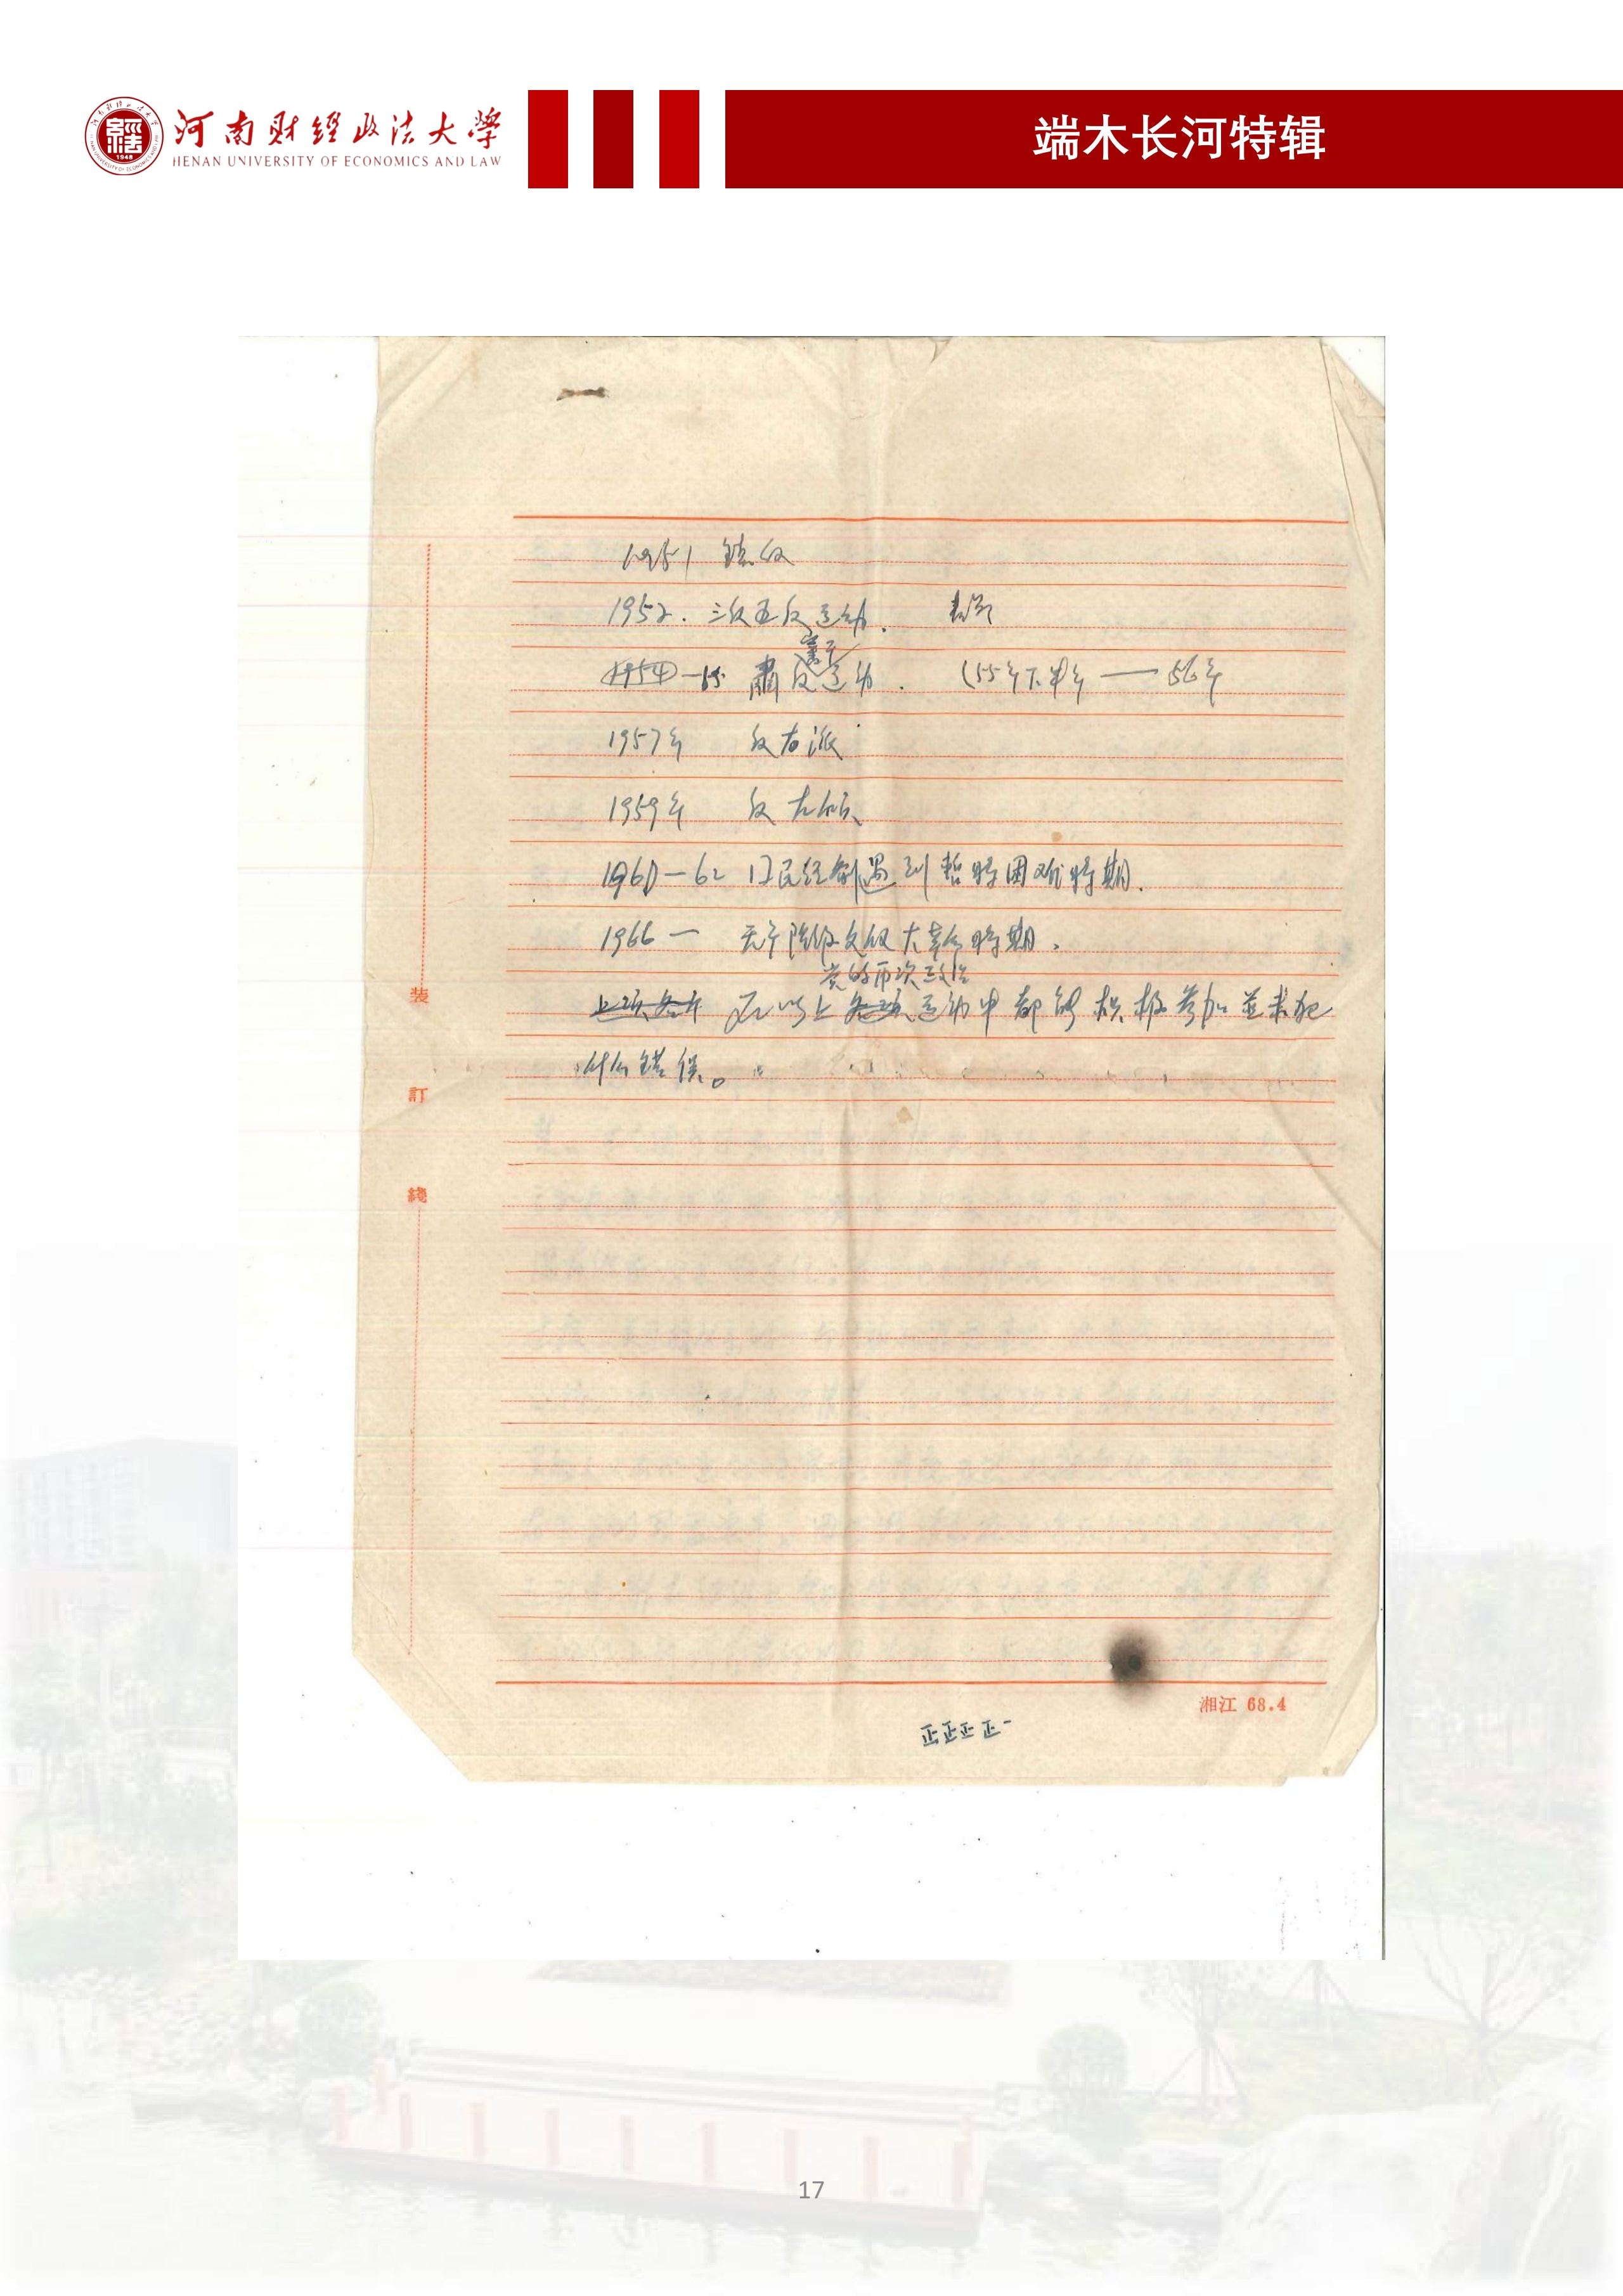 河南财经政法大学
HENAN UNIVERSITY OF ECONOMICS AND LAW
端木长河特辑
1951 镇反
1952. 三反五反运动.
审干
1954 —55 肃反运动. (55年下半年 —— 56年
1957年 反右派
1959年 反右倾
1960—62 国民经济遇到暂時困难時期.
1966 — 无产阶级文化大革命時期.
党的历次政治
在以上各项运动中都能积极参加並未犯
什么错误。
装
訂
綫
湘江 68.4
正正正正一
17